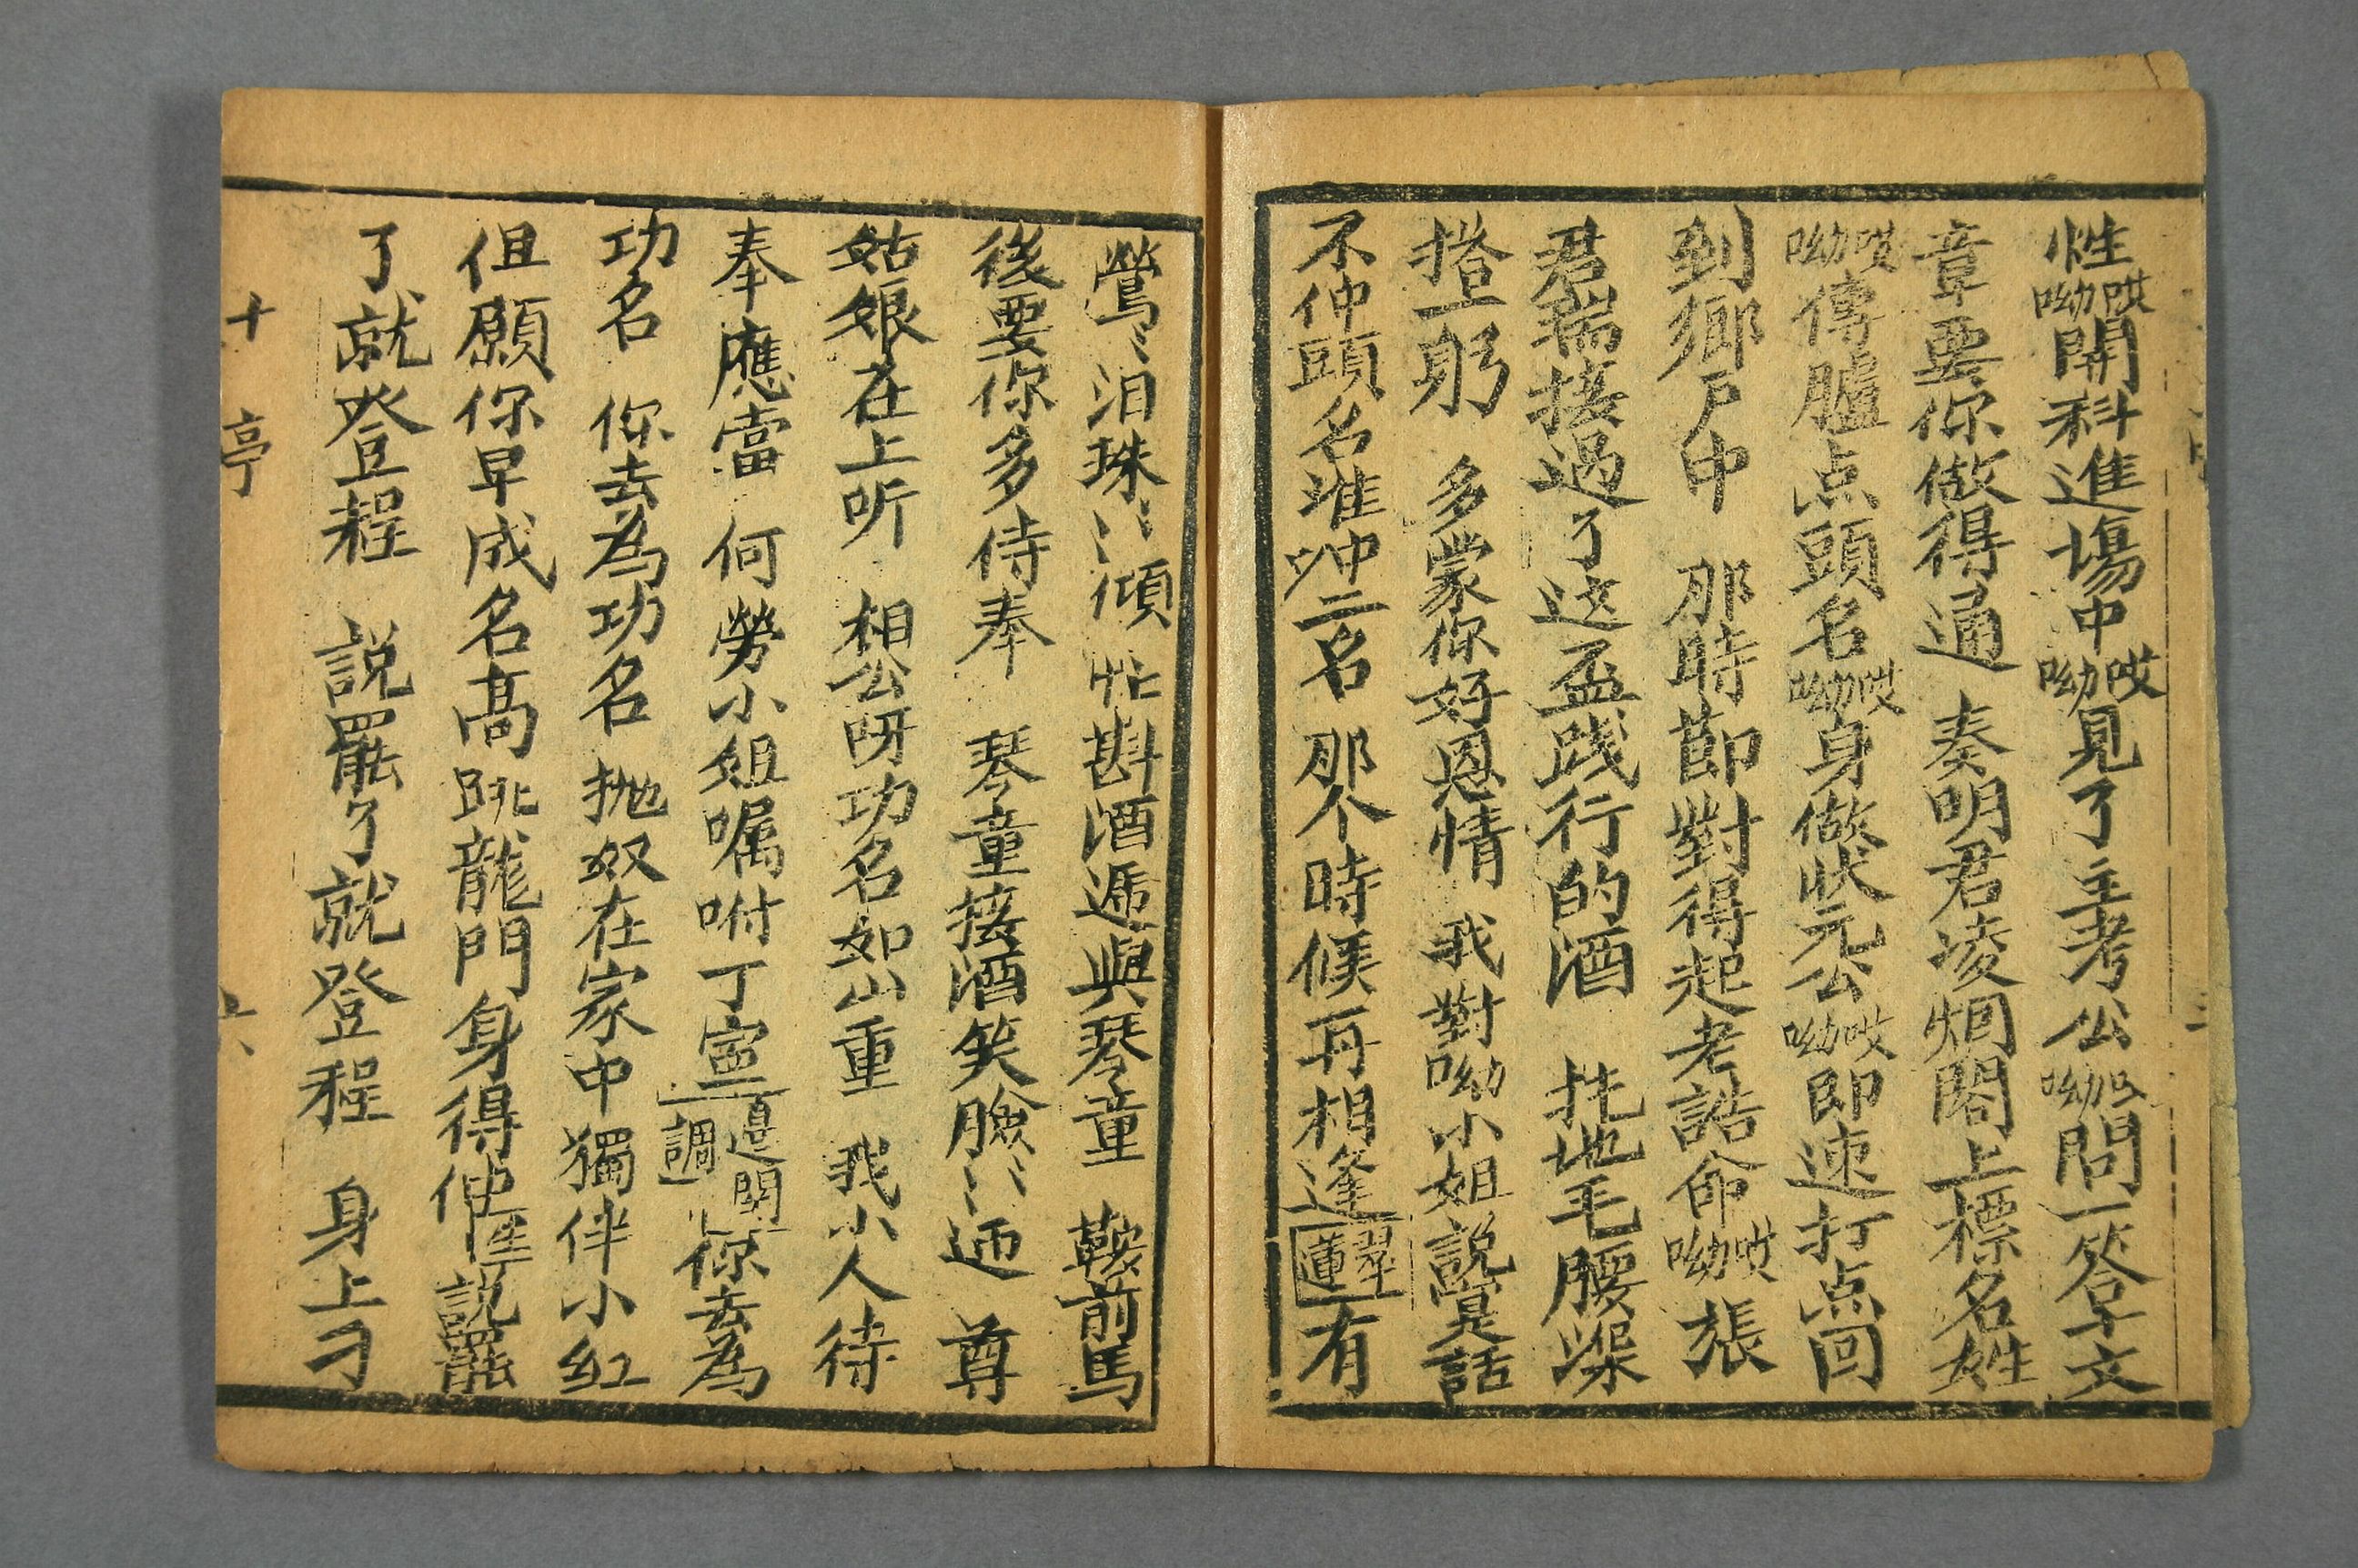 性哎呦開科進場中哎呦見了主考公哎呦問一答千文
章要你做得通　奏明君凌烟閣上標名姓
哎呦傳臚点頭名哎呦身做狀元公哎呦即速打点回
到鄉戶中　那時節對得起考誥命哎呦　張
君瑞接過了这盃践行的酒　扥地毛腰深
撜一躬　多蒙你好恩情　我對呦小姐說是話
不仲頭名準冲二名　那个時候再相逢翠蓮有
鶯〻泪珠〻傾　忙斟酒遞與琴童　鞍前馬
後要你多侍奉　琴童接酒笑臉〻迊　尊
姑娘在上听　相公呀功名如山重　我小人待
奉應當　何勞小姐嘱咐丁寧邊関調　你去為
功名　你去為功名　抛奴在家中獨伴小红
但願你早成名高跳龍門身得使性說罷
了就登程　說罷了就登程　身上刁
十　亭　六